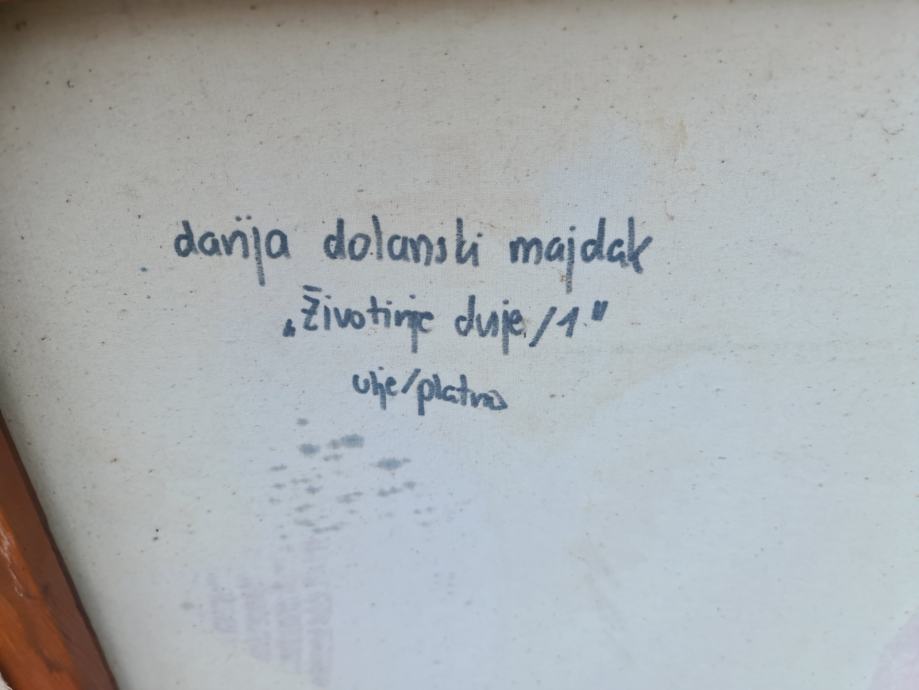 darija dolanski majdak
„životinje dvije/1."
ulje/platno